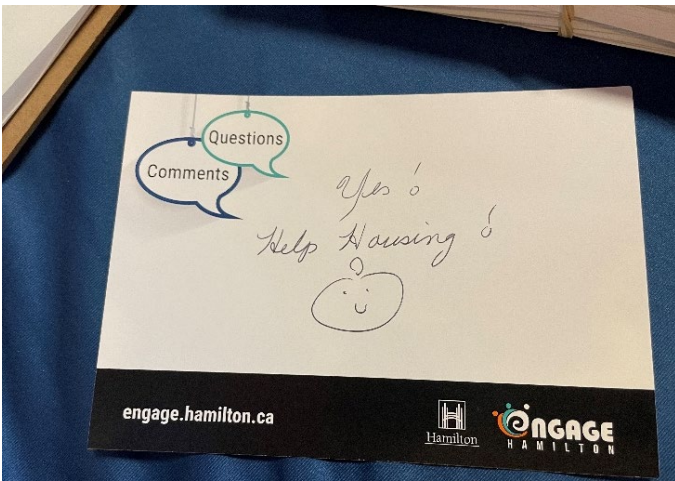 Questions
Comments
Yes!
Help Housing!
engage.hamilton.ca
Hamilton
ENGAGE
HAMILTON